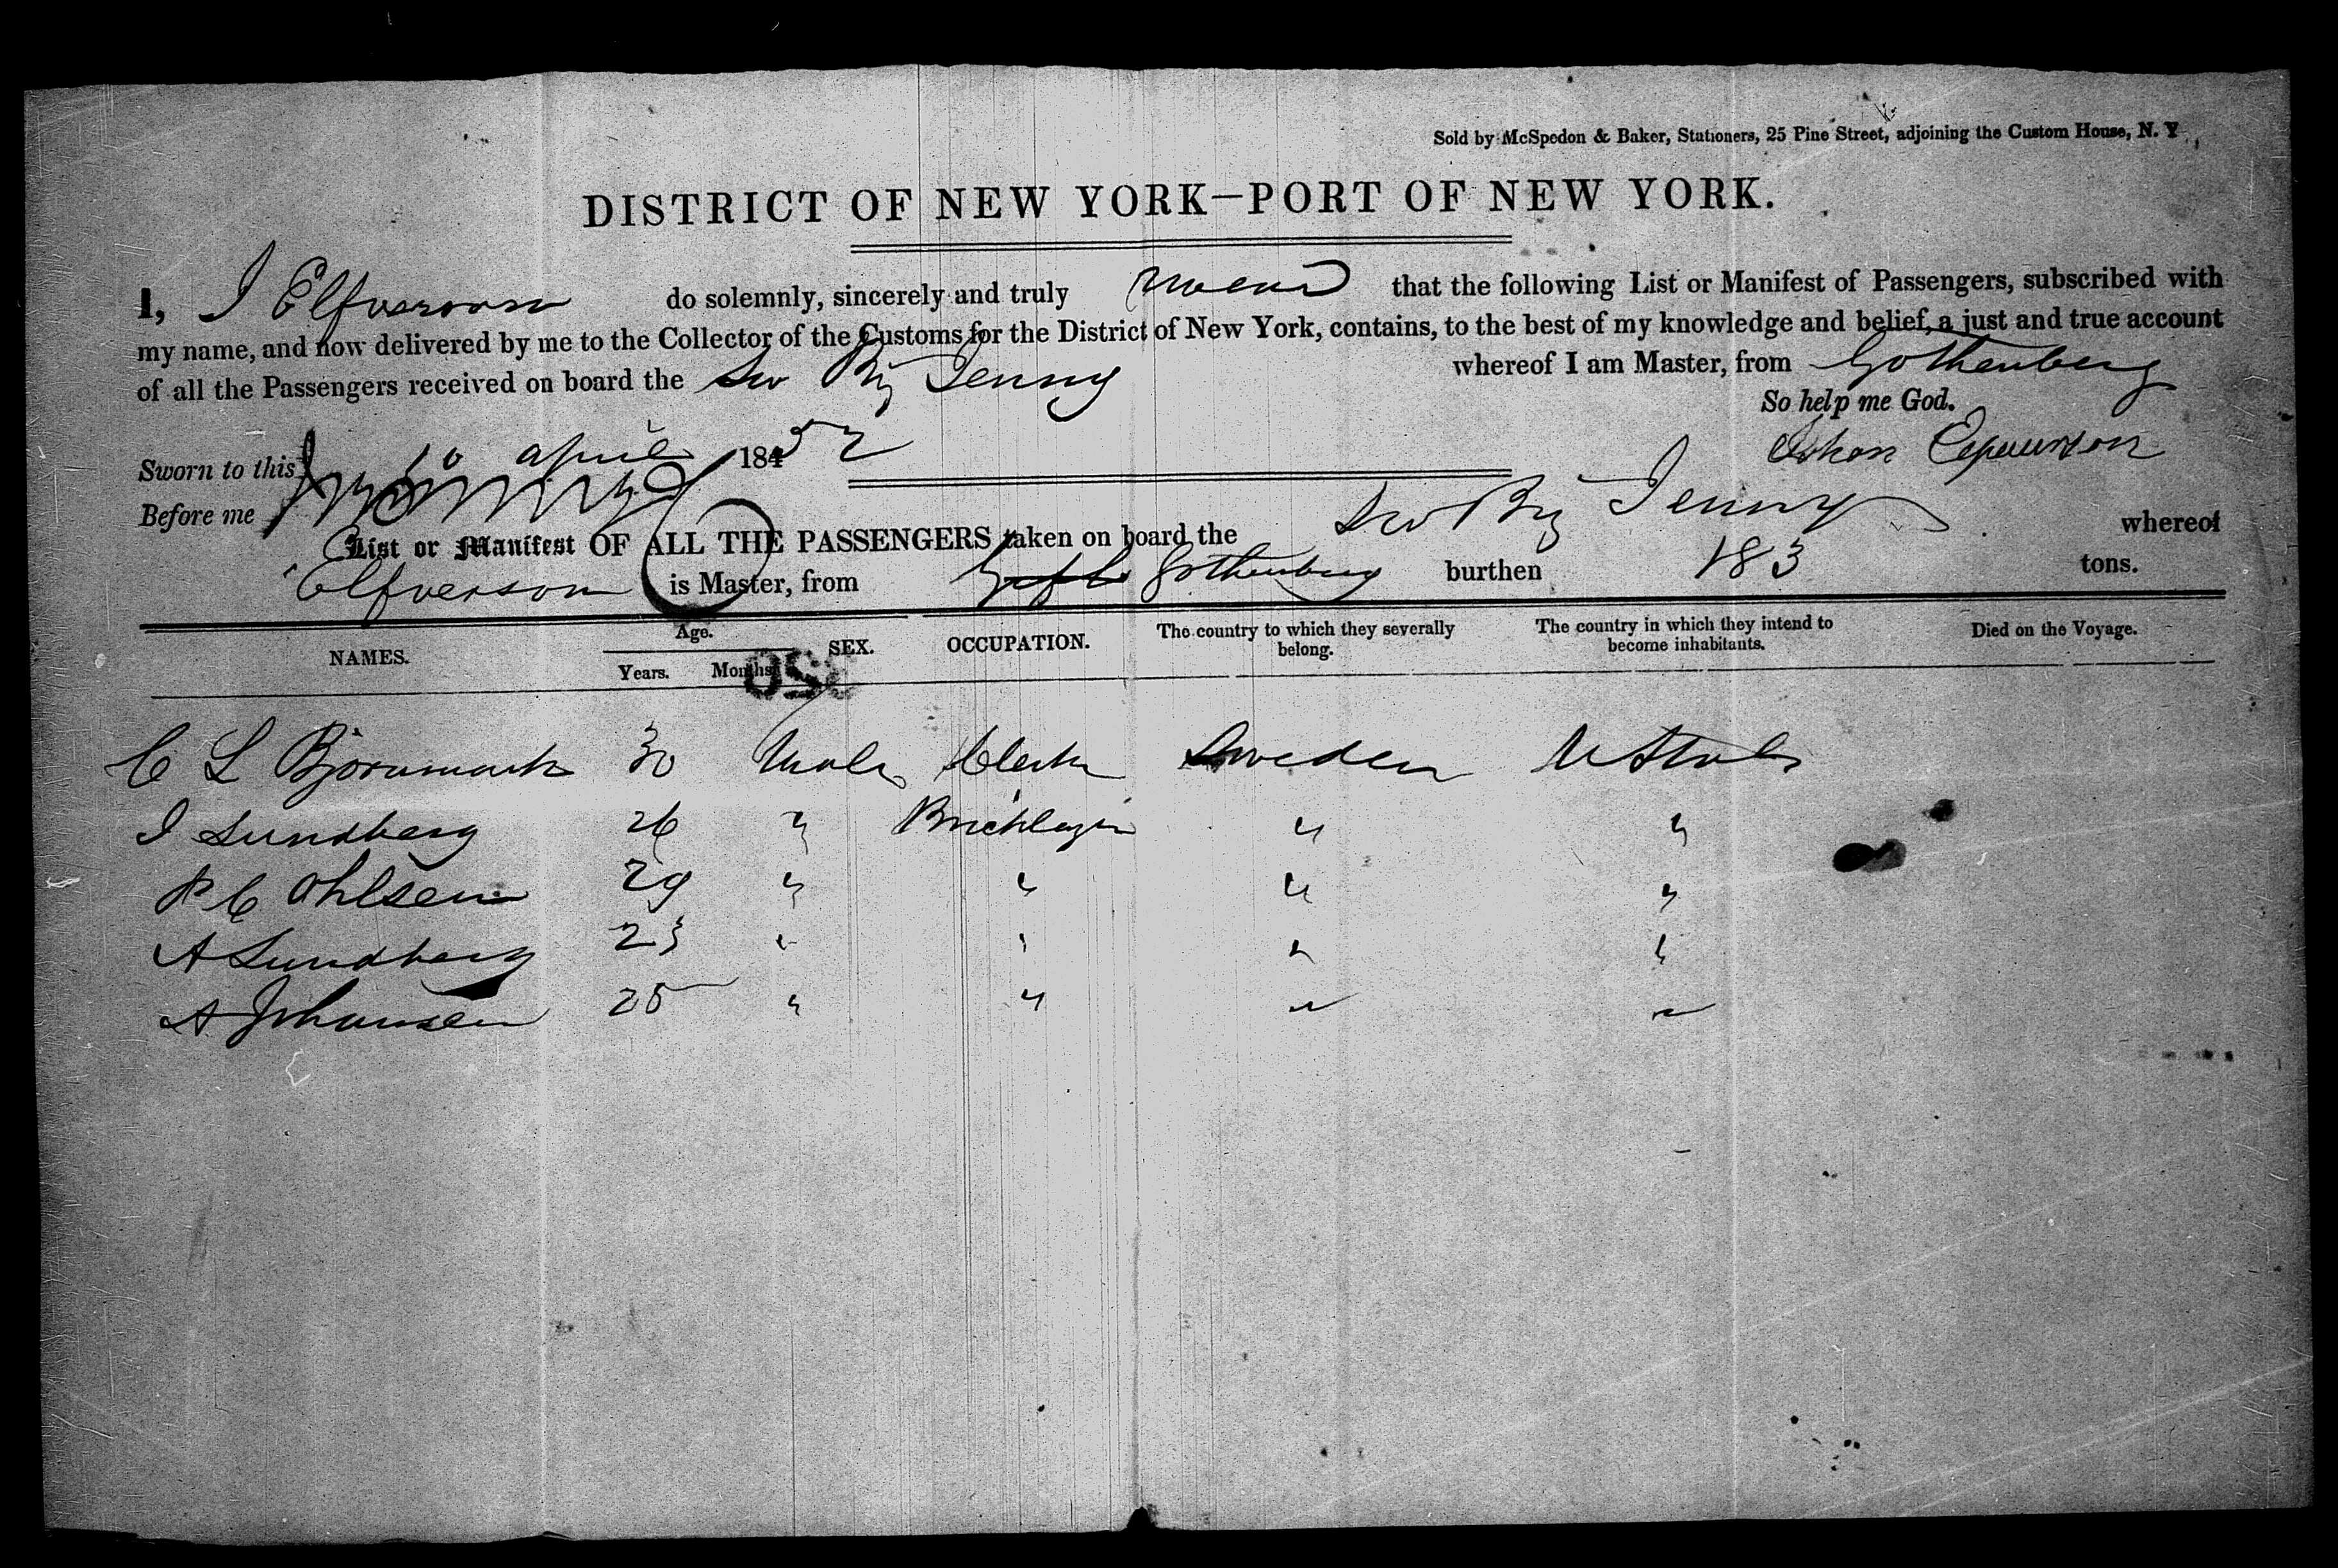 Sold by McSpedon & Baker, Stationers, 25 Pine Street, adjoining the Custom House, N. Y
DISTRICT OF NEW YORK—PORT OF NEW YORK.
I, J Elfverson do solemnly, sincerely and truly swear that the following List or Manifest of Passengers, subscribed with
my name, and now delivered by me to the Collector of the Customs for the District of New York, contains, to the best of my knowledge and belief, a just and true account
of all the Passengers received on board the Sw Brig Jenny whereof I am Master, from Gothenberg
So help me God.
Sworn to this 10 April 1852
Johan
Before me
List or Manifest OF ALL THE PASSENGERS taken on board the Sw Brig Jenny whereof
Elfverson is Master, from Gothenburg burthen 183 tons.
NAMES. Age. Years. Months SEX. OCCUPATION. The country to which they severally belong. The country in which they intend to become inhabitants. Died on the Voyage.
C L Bjornmark 30 Male Clerk Sweden U States
J Lundberg 26 " Bricklayer " "
P C Ohlsen 29 " " " "
A Lundberg 23 " " " "
A Johansen 25 " " " "